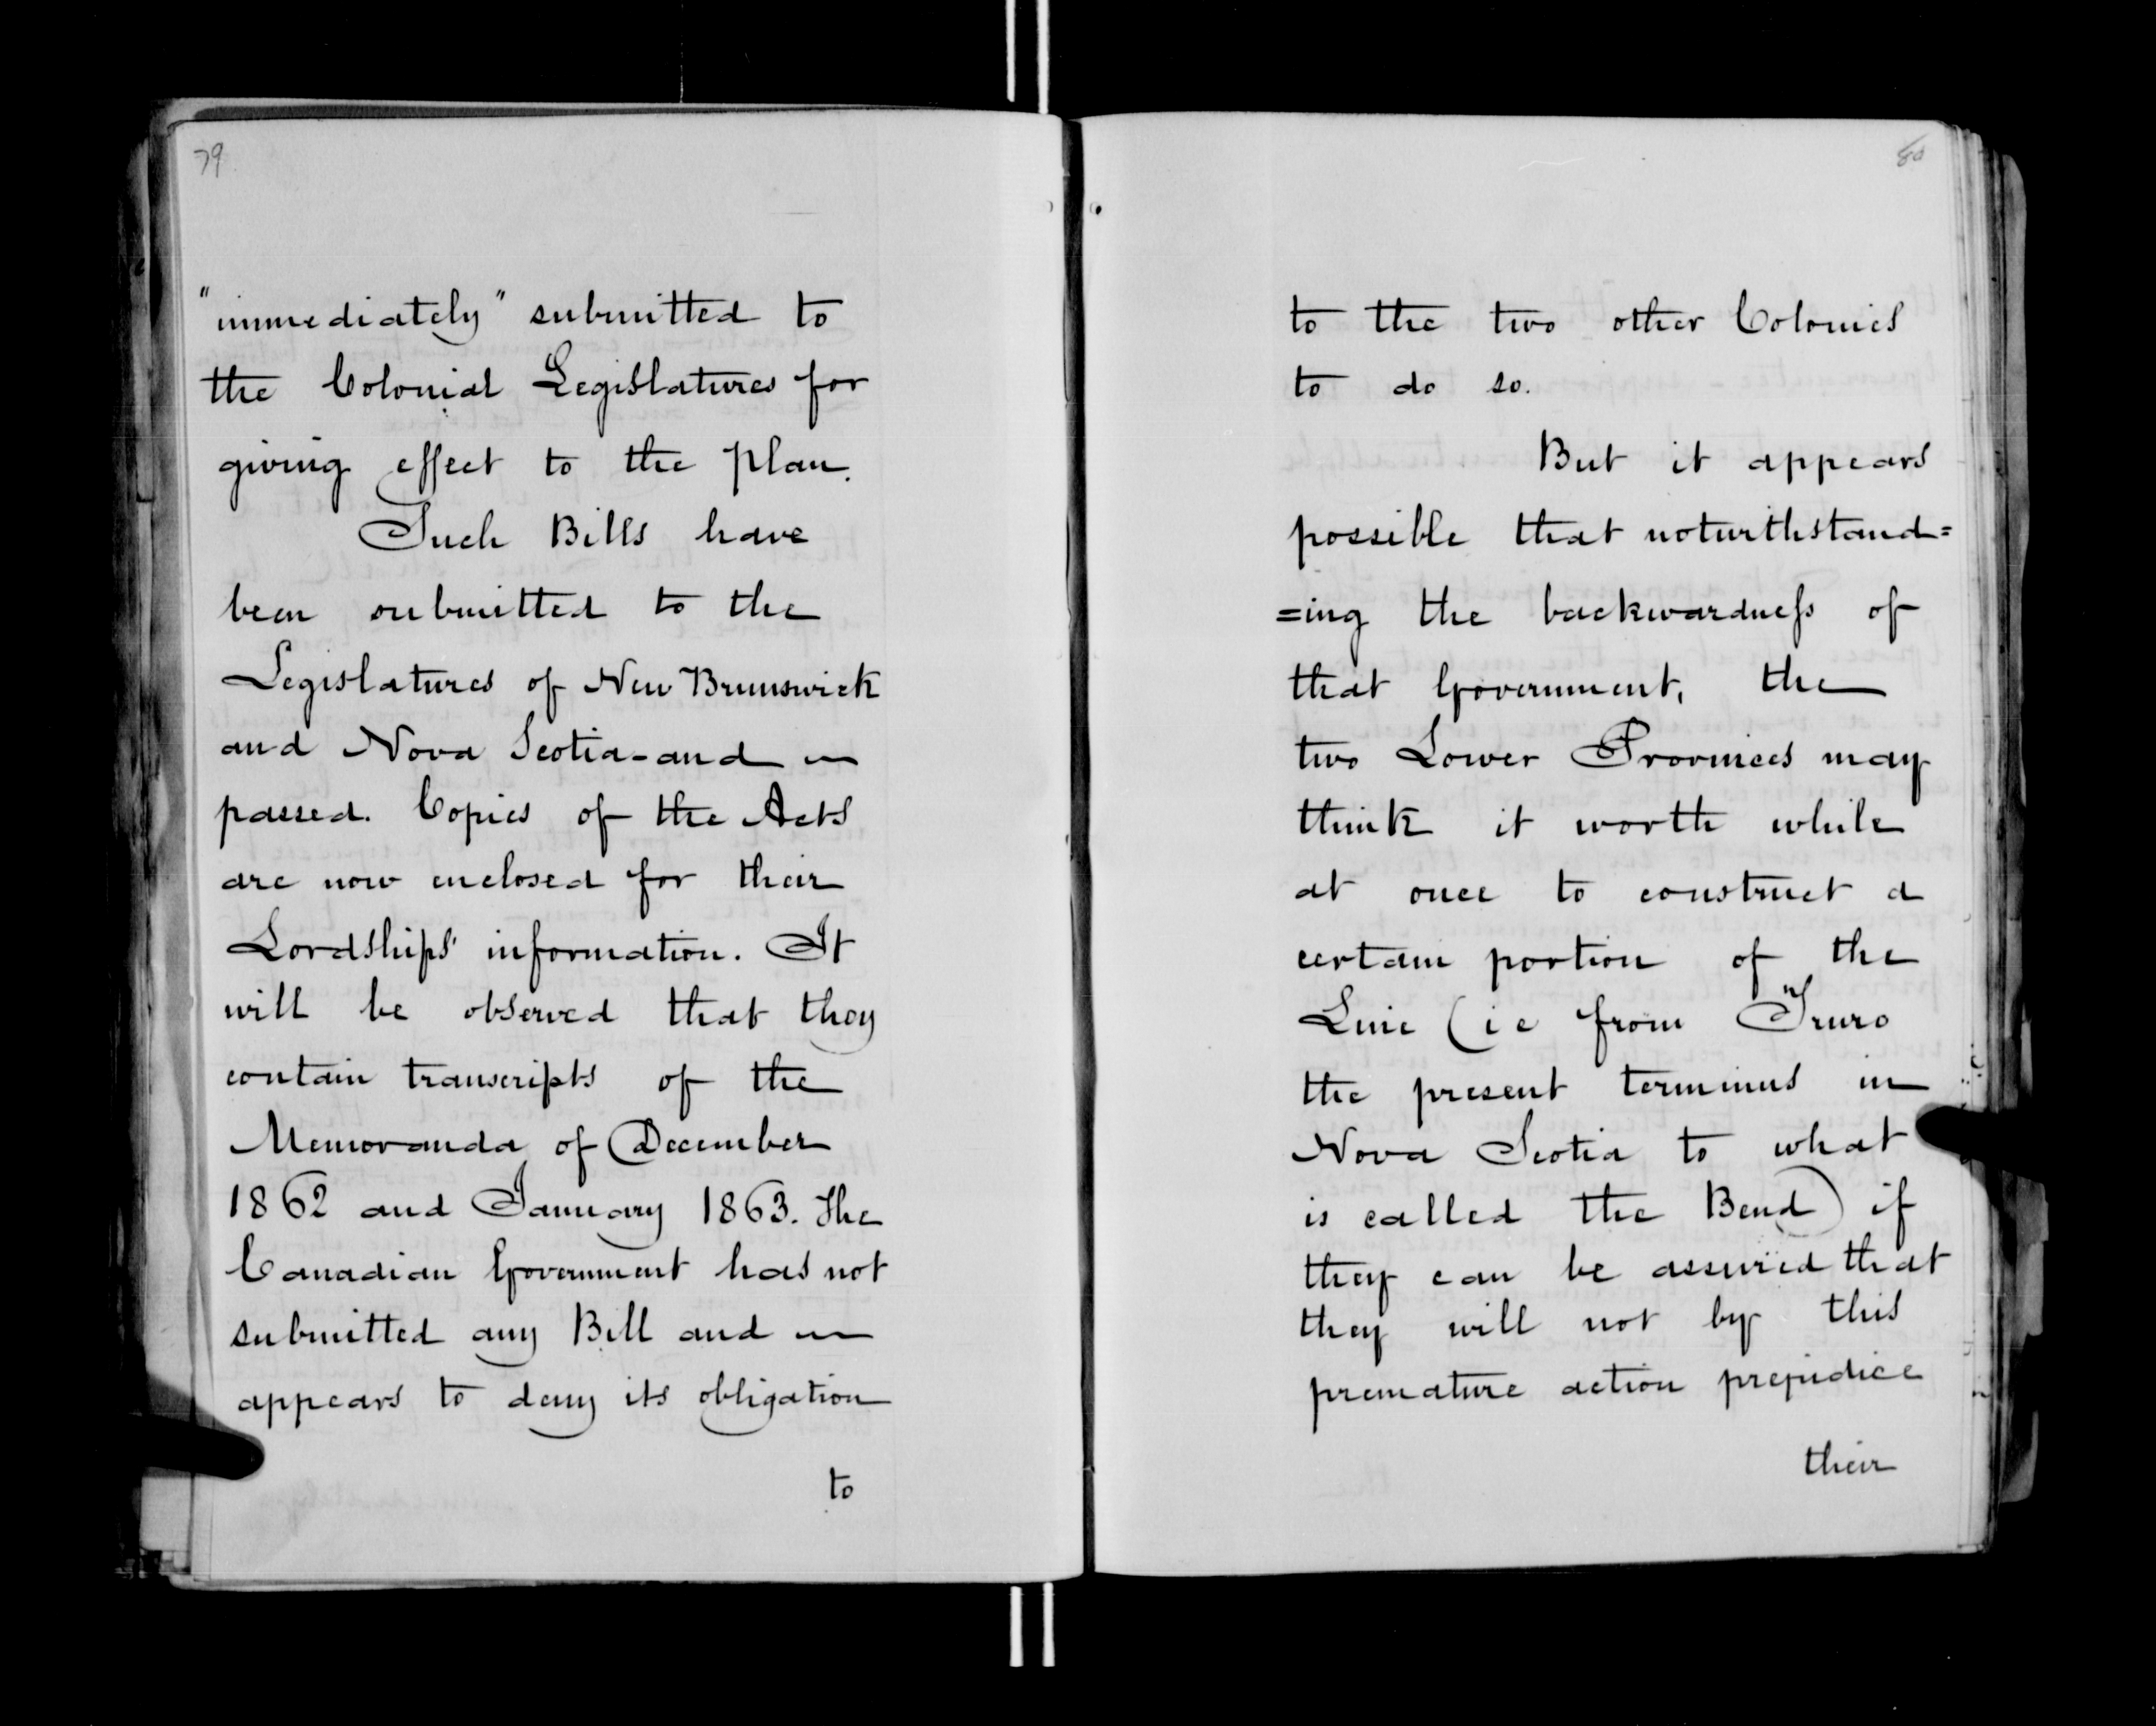 79
"immediately" submitted to
the Colonial Legislatures for
giving effect to the plan.
Such Bills have
been submitted to the
Legislatures of New Brunswick
and Nova Scotia - and
passed. Copies of the Acts
are now enclosed for their
Lordships' information. It
will be observed that they
contain transcripts of the
Memoranda of December
1862 and January 1863. The
Canadian Government has not
submitted any Bill and
appears to deny its obligation
to
80
to the two other Colonies
to do so.
But it appears
possible that notwithstand=
=ing the backwardness of
that Government, the
two Lower Provinces may
think it worth while
at once to construct a
certain portion of the
Line (ie from Truro
the present terminus in
Nova Scotia to what
is called the Bend) if
they can be assured that
they will not by this
premature action prejudice
their